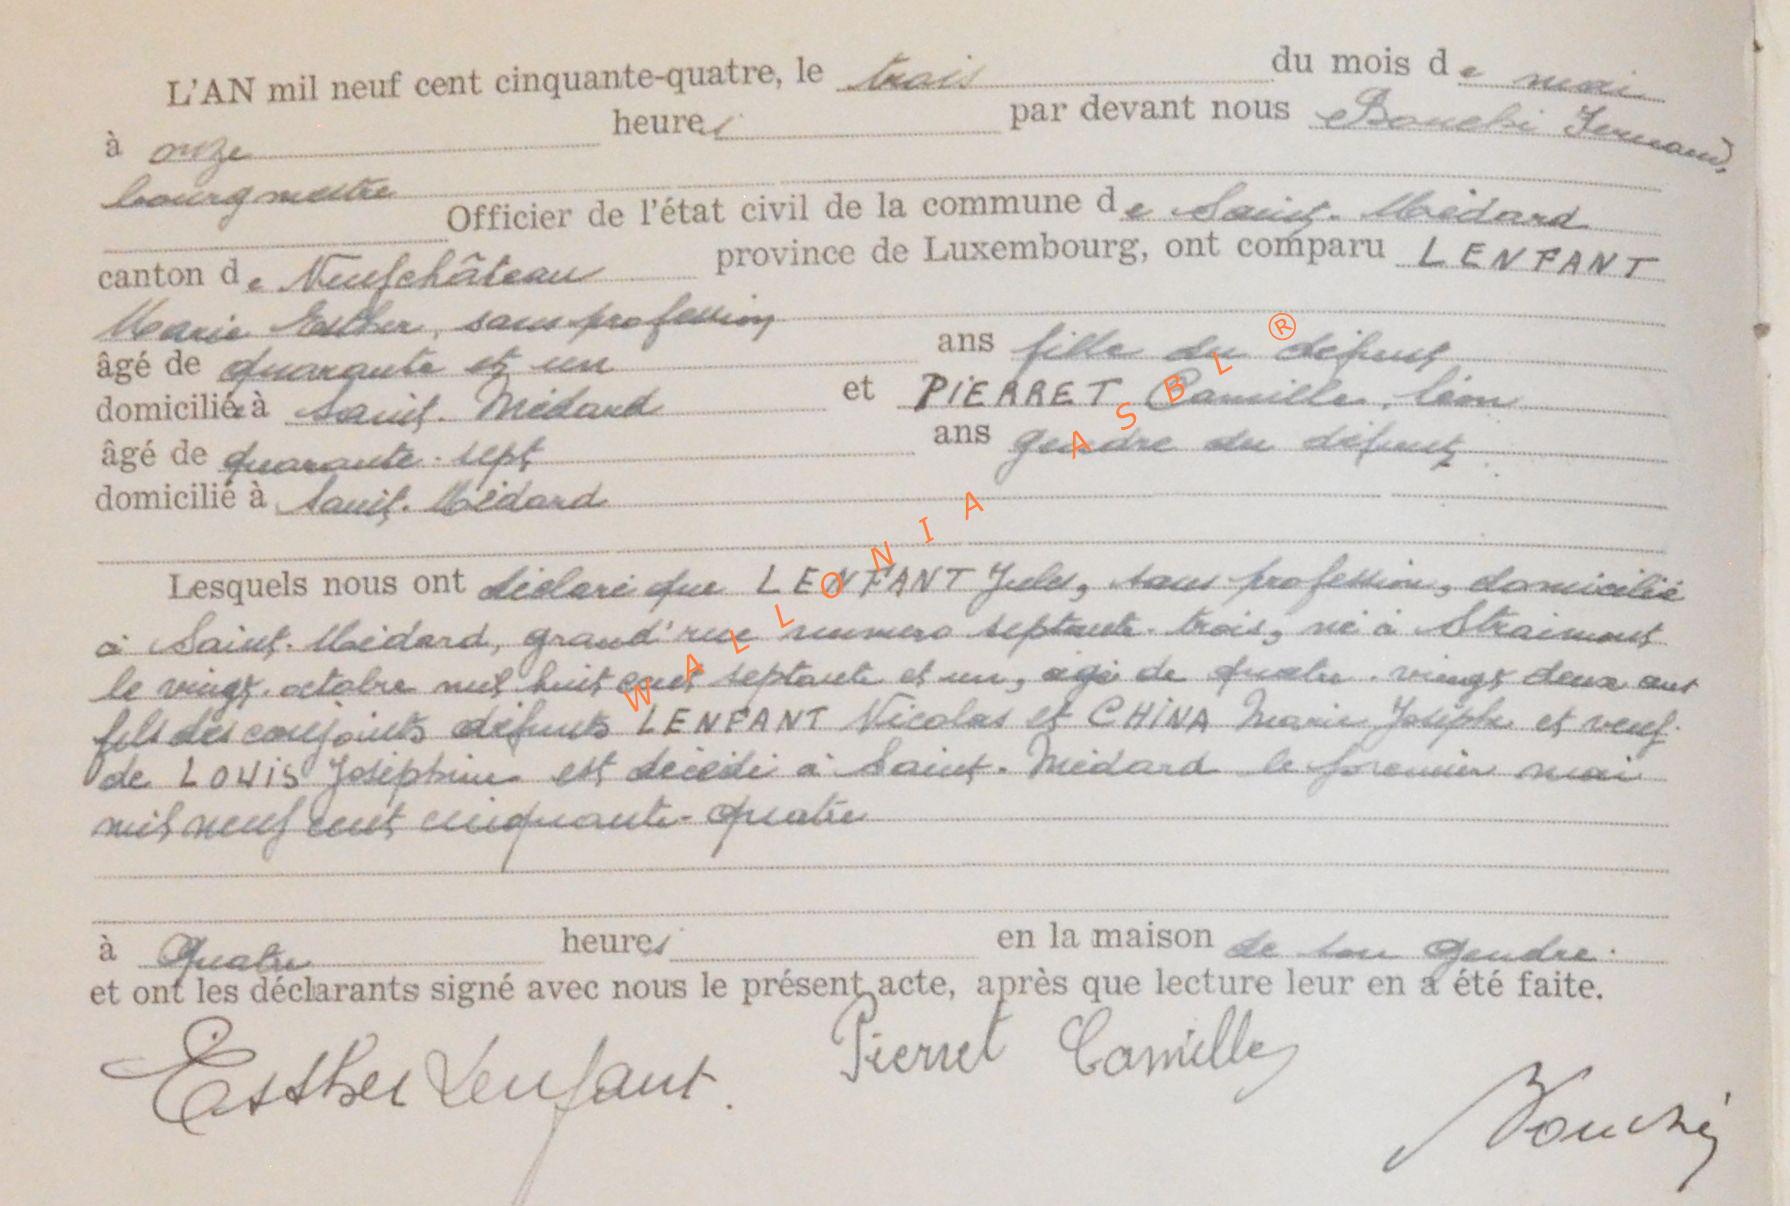 L'AN mil neuf cent cinquante-quatre, le trois du mois de mai
à onze heures par devant nous Bouchi Fernand,
bourgmestre
Officier de l'état civil de la commune de Saint-Médard
canton de Neufchâteau province de Luxembourg, ont comparu LENFANT
Marie Esther, sans profession
âgé de quarante et un ans fille du défunt
domiciliée à Saint-Médard et PIERRET Camille, léon
âgé de quarante-sept ans gendre du défunt
domicilié à Saint-Médard
Lesquels nous ont déclaré que LENFANT Jules, sans profession, domicilié
à Saint-Médard, grand'rue numéro septante-trois, né à Straimont
le vingt octobre mil huit cent septante et un, âgé de quatre-vingt deux ans
fils des conjoints défunts LENFANT Nicolas et CHINA Marie Joseph et veuf
de LOUIS Joséphine est décédé à Saint-Médard le premier mai
mil neuf cent cinquante-quatre
à quatre heures en la maison de son gendre.
et ont les déclarants signé avec nous le présent acte, après que lecture leur en a été faite.
Esther Lenfant. Pierret Camille
Bouchi
WALLONIA ASBL ®